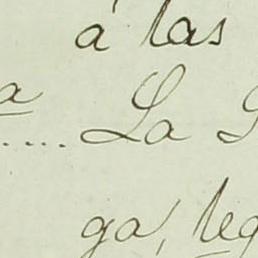 á las
a
..... La
ga, leg